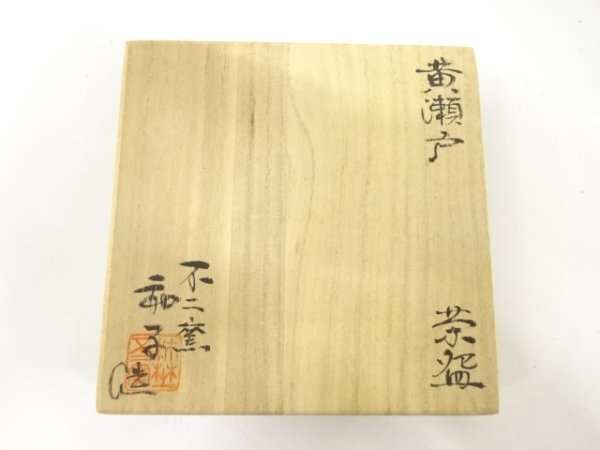 黄瀬戸
茶盌
不二窯
子造